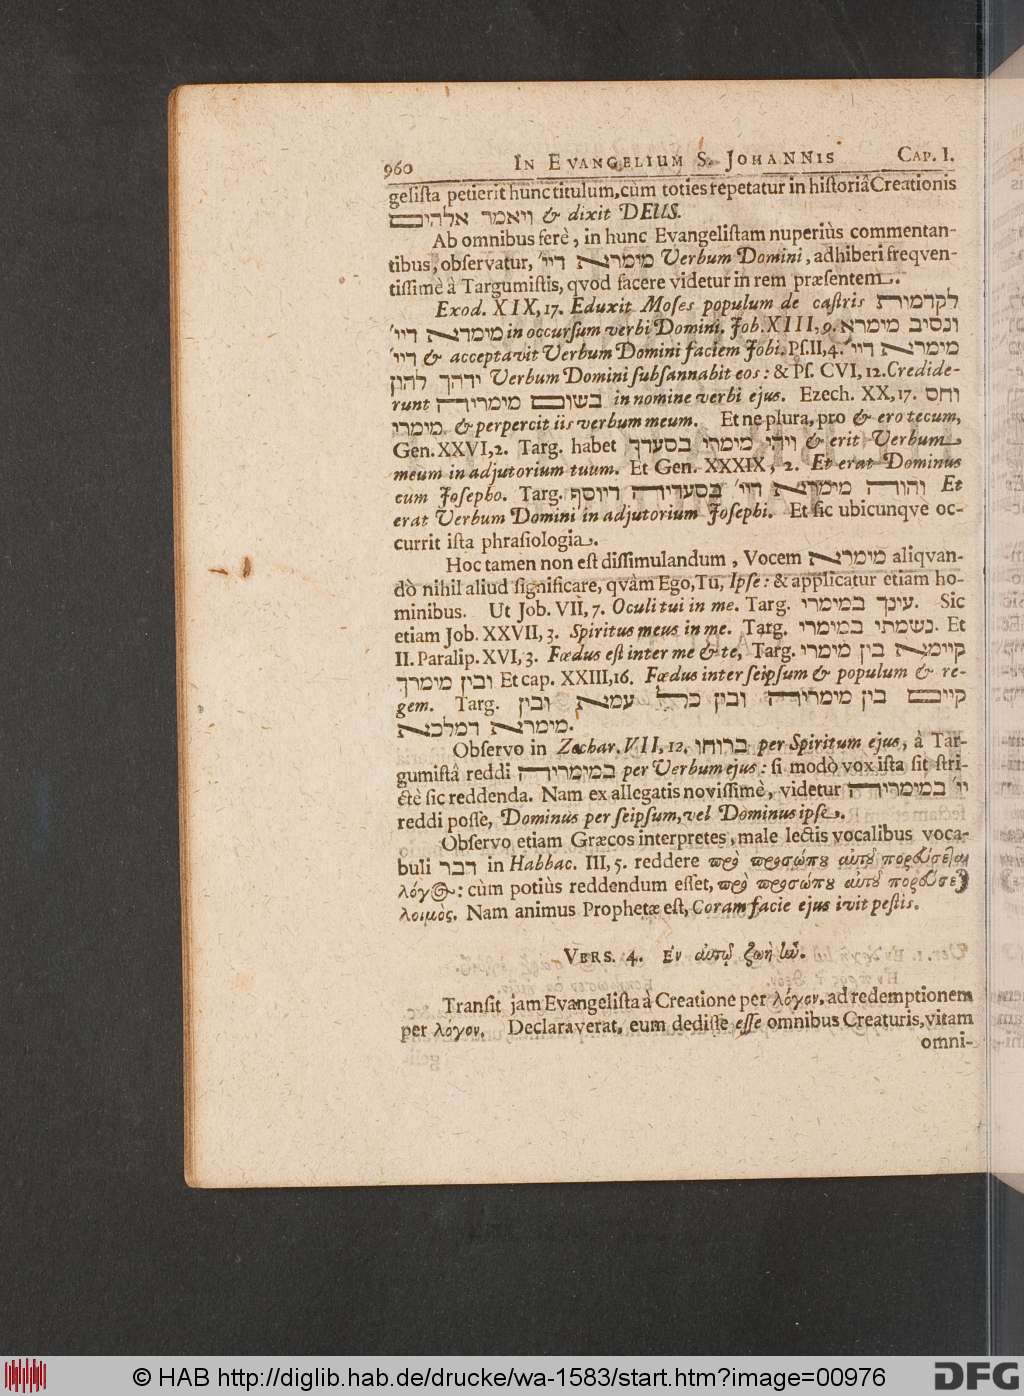 960 IN EVANGELIUM S. JOHANNIS CAP. I.
geliſta petierit hunc titulum, cùm toties repetatur in hiſtoriâ Creationis
ויאמר אלהים & dixit DEUS.
Ab omnibus ferè, in hunc Evangeliſtam nuperiùs commentan-
tibus, obſervatur, מימרא דיי׳ Verbum Domini, adhiberi freqven-
tiſſimè â Targumiſtis, qvod facere videtur in rem præſentem.
Exod. XIX, 17. Eduxit Moſes populum de caſtris לקדמות
מימרא דיי׳ in occurſum verbi Domini. Job. XIII, 9. ונסיב מימרא
דיי׳ & acceptavit Verbum Domini faciem Jobi. Pſ. II, 4. מימרא דיי׳
ידחך להון Verbum Domini ſubſannabit eos: & Pſ. CVI, 12. Credide-
runt בשום מימריה in nomine verbi ejus. Ezech. XX, 17. וחס
מימרי & perpercit iis verbum meum. Et ne plura, pro & ero tecum,
Gen. XXVI, 2. Targ. habet ויהי מימרי בסעדך & erit Verbum
meum in adjutorium tuum. Et Gen. XXXIX, 2. Et erat Dominus
cum Joſepho. Targ. והוה מימרא דיי׳ בסעדיה דיוסף Et
erat Verbum Domini in adjutorium Joſephi. Et ſic ubicunqve oc-
currit iſta phraſiologia.
Hoc tamen non eſt diſſimulandum, Vocem מימרא aliqvan-
dò nihil aliud ſignificare, qvàm Ego, Tu, Ipſe: & applicatur etiam ho-
minibus. Ut Job. VII, 7. Oculi tui in me. Targ. עינך במימרי. Sic
etiam Job. XXVII, 3. Spiritus meus in me. Targ. נשמתי במימרי. Et
II. Paralip. XVI, 3. Fœdus eſt inter me & te, Targ. קיימא בין מימרי
ובין מימרך Et cap. XXIII, 16. Fœdus inter ſeipſum & populum & re-
gem. Targ. קיים בין מימריה ובין כל עמא ובין
מימרא דמלכא.
Obſervo in Zechar. VII, 12. ברוחו per Spiritum ejus, â Tar-
gumiſtâ reddi במימריה per Verbum ejus: ſi modò vox iſta ſit ſtri-
ctè ſic reddenda. Nam ex allegatis noviſſimè, videtur יי׳ במימריה
reddi poſſe, Dominus per ſeipſum, vel Dominus ipſe.
Obſervo etiam Græcos interpretes, male lectis vocalibus voca-
buli דבר in Habbac. III, 5. reddere πρὸ προσώπου αὐτοῦ πορεύσεται
λόγος: cùm potiùs reddendum eſſet, πρὸ προσώπου αὐτοῦ πορεύσε)
λοιμὸς. Nam animus Prophetæ eſt, Coram facie ejus ivit peſtis.
VERS. 4. Εν αὐτῷ ζωὴ ἦν.
Tranſit jam Evangeliſta à Creatione per λόγον, ad redemptionem
per λόγον. Declaraverat, eum dediſſe eſſe omnibus Creaturis, vitam
omni-
© HAB http://diglib.hab.de/drucke/wa-1583/start.htm?image=00976
DFG